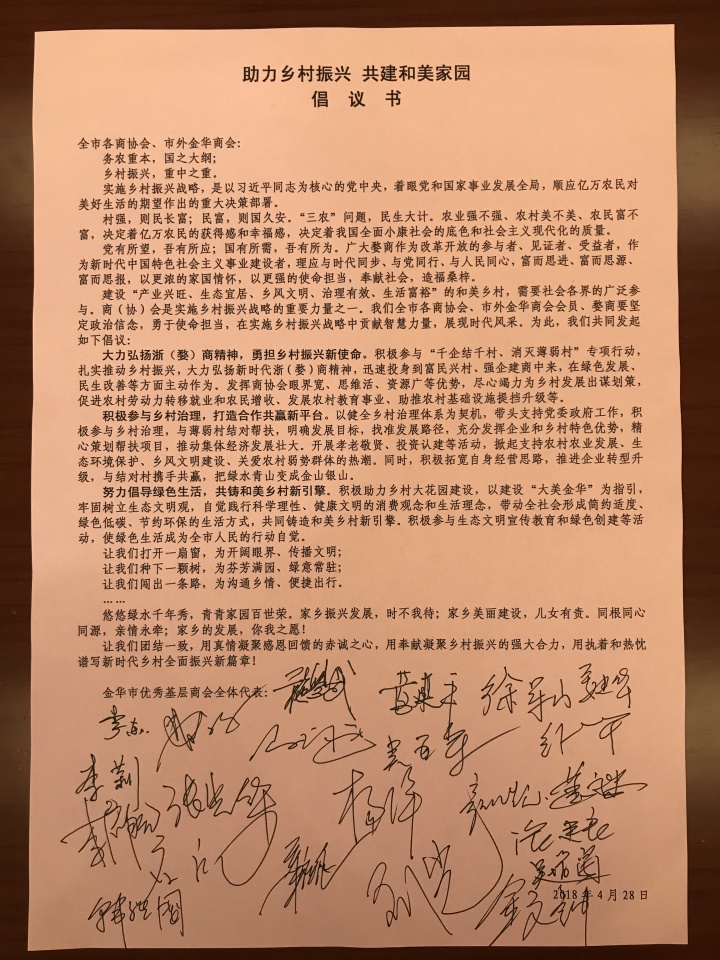 助力乡村振兴 共建和美家园
倡 议 书
全市各商协会、市外金华商会：
务农重本，国之大纲；
乡村振兴，重中之重。
实施乡村振兴战略，是以习近平同志为核心的党中央，着眼党和国家事业发展全局，顺应亿万农民对
美好生活的期望作出的重大决策部署。
村强，则民长富；民富，则国久安。“三农”问题，民生大计。农业强不强、农村美不美、农民富不
富，决定着亿万农民的获得感和幸福感，决定着我国全面小康社会的底色和社会主义现代化的质量。
党有所望，吾有所应；国有所需，吾有所为。广大婺商作为改革开放的参与者、见证者、受益者，作
为新时代中国特色社会主义事业建设者，理应与时代同步、与党同行、与人民同心，富而思进、富而思源、
富而思报，以更浓的家国情怀，以更强的使命担当，奉献社会，造福桑梓。
建设“产业兴旺、生态宜居、乡风文明、治理有效、生活富裕”的和美乡村，需要社会各界的广泛参
与。商（协）会是实施乡村振兴战略的重要力量之一。我们全市各商协会、市外金华商会会员、婺商要坚
定政治信念，勇于使命担当，在实施乡村振兴战略中贡献智慧力量，展现时代风采。为此，我们共同发起
如下倡议：
大力弘扬浙（婺）商精神，勇担乡村振兴新使命。积极参与“千企结千村、消灭薄弱村”专项行动，
扎实推动乡村振兴，大力弘扬新时代浙（婺）商精神，迅速投身到富民兴村、强企建商中来，在绿色发展、
民生改善等方面主动作为。发挥商协会眼界宽、思维活、资源广等优势，尽心竭力为乡村发展出谋划策，
促进农村劳动力转移就业和农民增收、发展农村教育事业、助推农村基础设施提挡升级等。
积极参与乡村治理，打造合作共赢新平台。以健全乡村治理体系为契机，带头支持党委政府工作，积
极参与乡村治理，与薄弱村结对帮扶，明确发展目标，找准发展路径，充分发挥企业和乡村特色优势，精
心策划帮扶项目，推动集体经济发展壮大。开展孝老敬贤、投资认建等活动，掀起支持农村农业发展、生
态环境保护、乡风文明建设、关爱农村弱势群体的热潮。同时，积极拓宽自身经营思路，推进企业转型升
级，与结对村携手共赢，把绿水青山变成金山银山。
努力倡导绿色生活，共铸和美乡村新引擎。积极助力乡村大花园建设，以建设“大美金华”为指引，
牢固树立生态文明观，自觉践行科学理性、健康文明的消费观念和生活理念，带动全社会形成简约适度、
绿色低碳、节约环保的生活方式，共同铸造和美乡村新引擎。积极参与生态文明宣传教育和绿色创建等活
动，使绿色生活成为全市人民的行动自觉。
让我们打开一扇窗，为开阔眼界、传播文明；
让我们种下一颗树，为芬芳满园、绿意常驻；
让我们闯出一条路，为沟通乡情、便捷出行。
……
悠悠绿水千年秀，青青家园百世荣。家乡振兴发展，时不我待；家乡美丽建设，儿女有责。同根同心
同源，亲情永牵；家乡的发展，你我之愿！
让我们团结一致，用真情凝聚感恩回馈的赤诚之心，用奉献凝聚乡村振兴的强大合力，用执着和热忱
谱写新时代乡村全面振兴新篇章！
金华市优秀基层商会全体代表：
2018 年 4 月 28 日